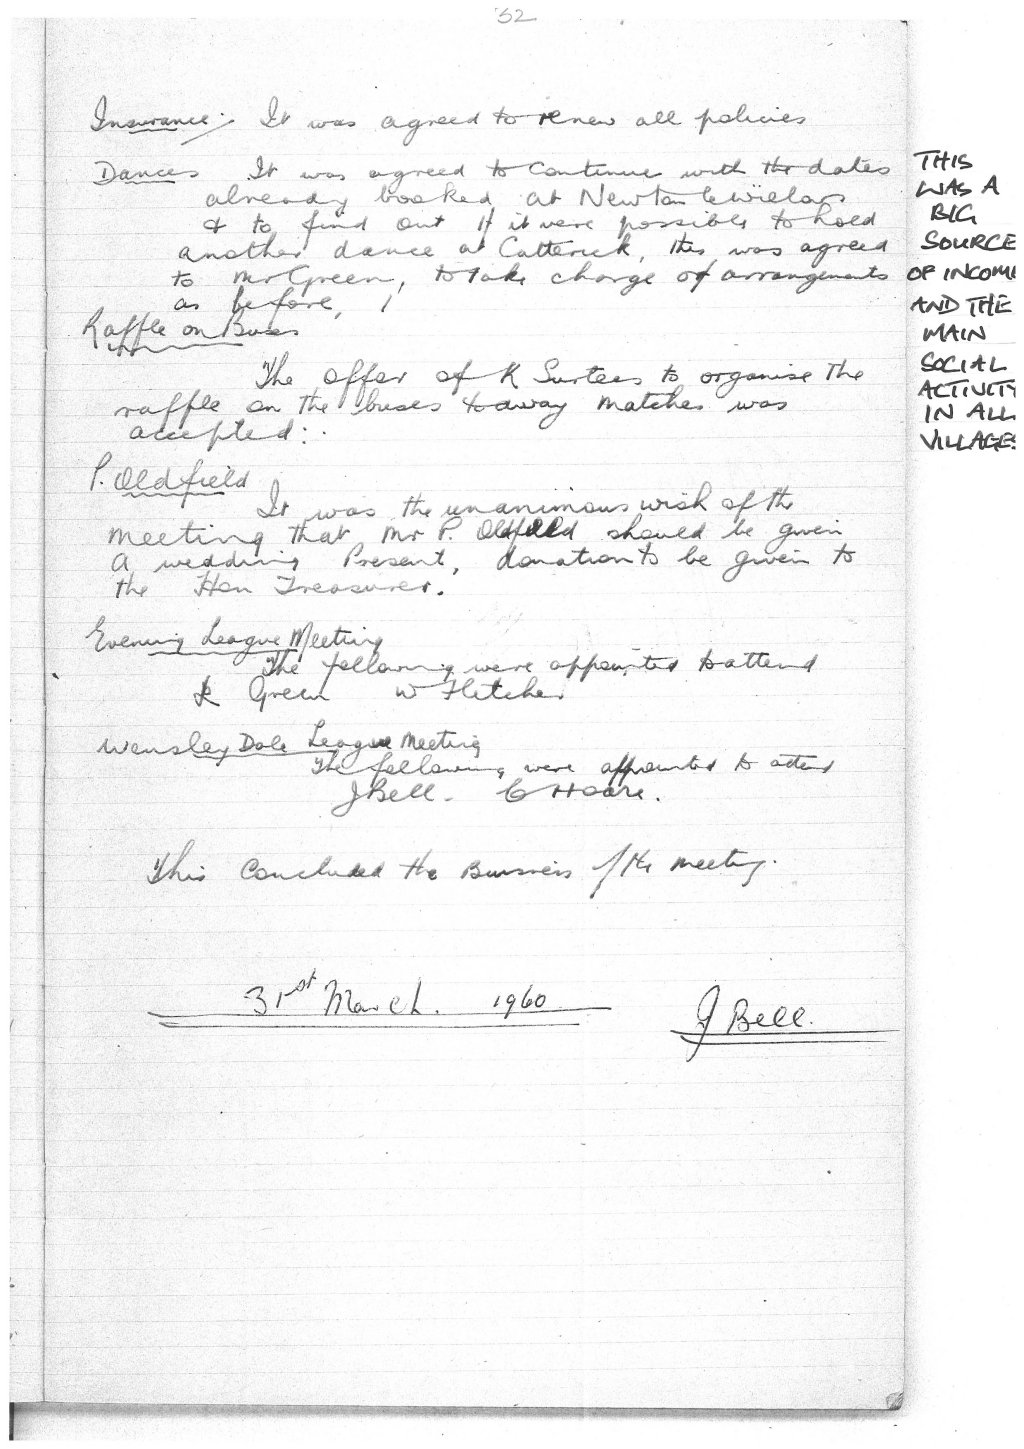 32
Insurance:- It was agreed to renew all policies
Dances It was agreed to continue with the dates
already booked at Newton le Willows
& to find out if it were possible to hold
another dance at Catterick, this was agreed
to Mr Green, to take charge of arrangements
as before,
Raffle on Buses
The offer of K Surtees to organise The
raffle on the buses to away matches was
accepted:.
P. Oldfield
It was the unanimous wish of the
meeting that Mr P. Oldfield should be given
a wedding Present, donation to be given to
the Hon Treasurer.
Evening League Meeting
The following were appointed to attend
Green W Fletcher
Wensley Dale League Meeting
The following were appointed to attend
J Bell. C Hoare.
This Concluded the Business of the meeting.
31st March. 1960
J Bell.
THIS
WAS A
BIG
SOURCE
OF INCOME
AND THE
MAIN
SOCIAL
ACTIVITY
IN ALL
VILLAGES